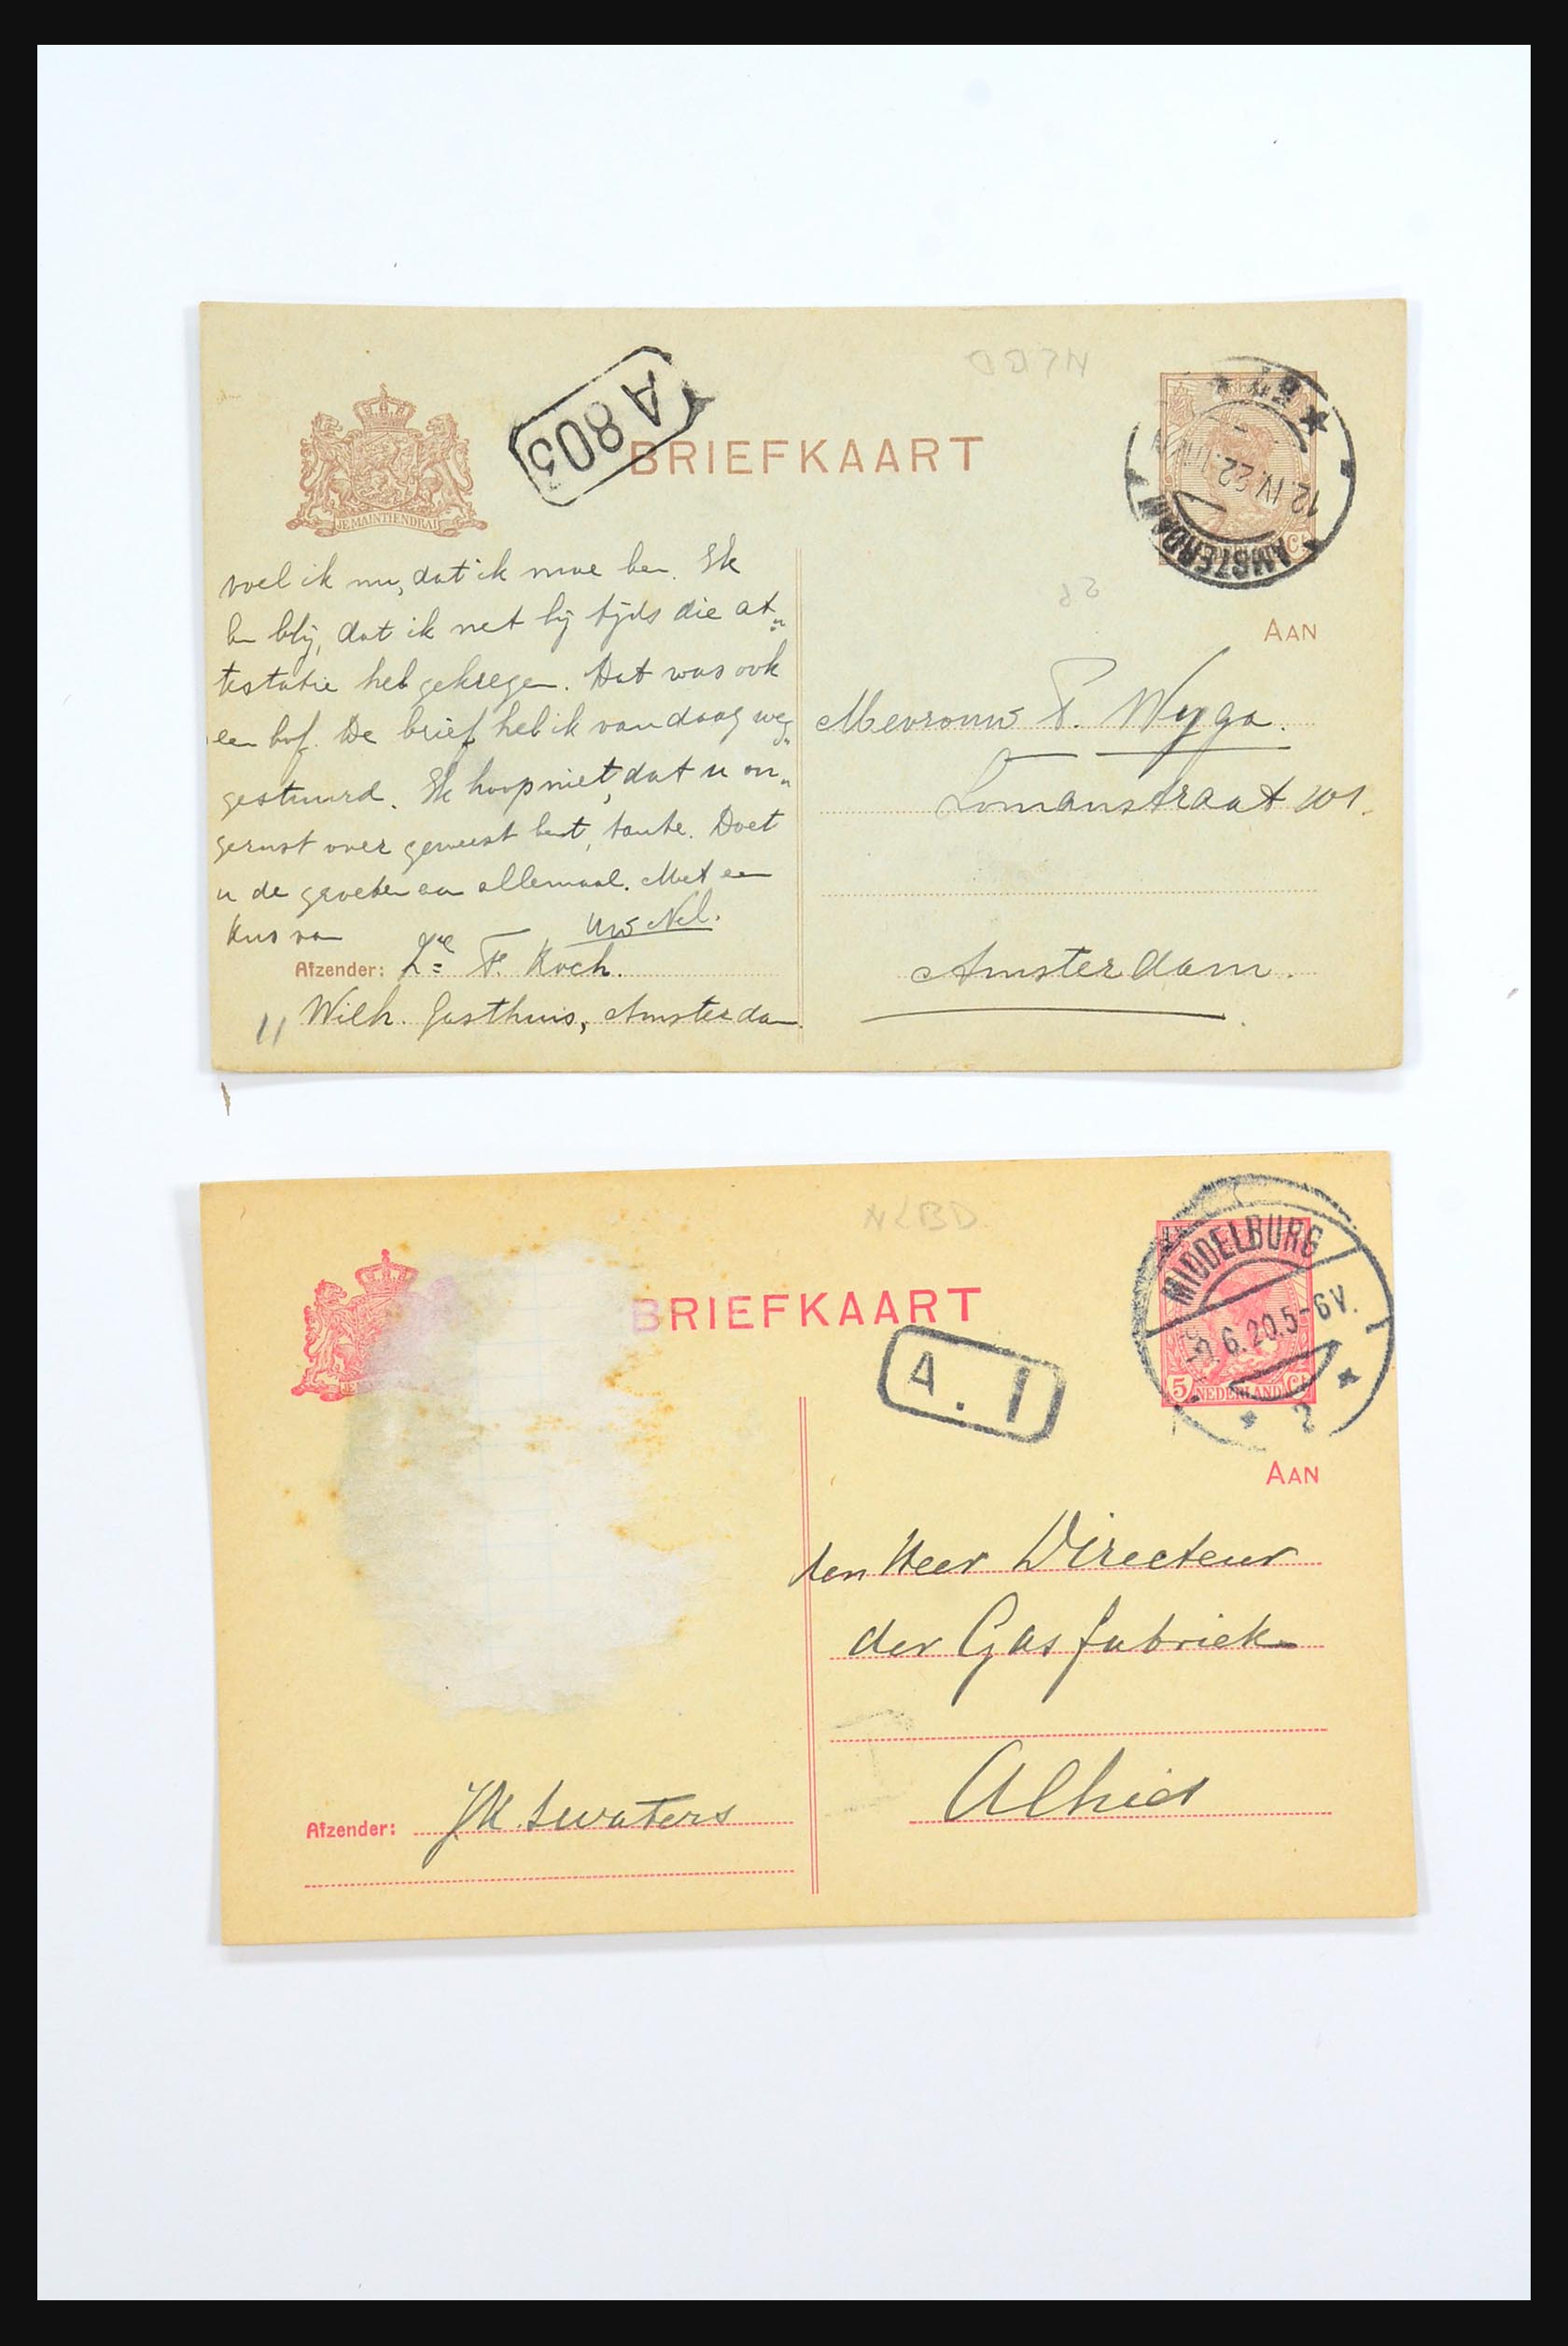 NLBD
A 803
BRIEFKAART
JE MAINTIENDRAI
AMSTERDAM
12.IV.22.
voel ik nu, dat ik moe ben. Ik
ben blij, dat ik net bij tijds die at„
testatie heb gekregen. Dat was ook
een bof. De brief heb ik vandaag weg„
gestuurd. Ik hoop niet, dat u on„
gerust over geweest bent, tante. Doet
u de groeten aan allemaal. Met een
kus van
uw Nel.
Afzender: Z.. F. Koch.
Wilh. Gasthuis, Amsterdam.
11
AAN
Mevrouw F. Wyga.
Lomanstraat 101.
Amsterdam.
NLBD
BRIEFKAART
A. 1
MIDDELBURG
6.20.5-6V.
2
5 NEDERLAND Ct
AAN
den Heer Directeur
der Gasfabriek
Alhier
Afzender: JK. Swaters